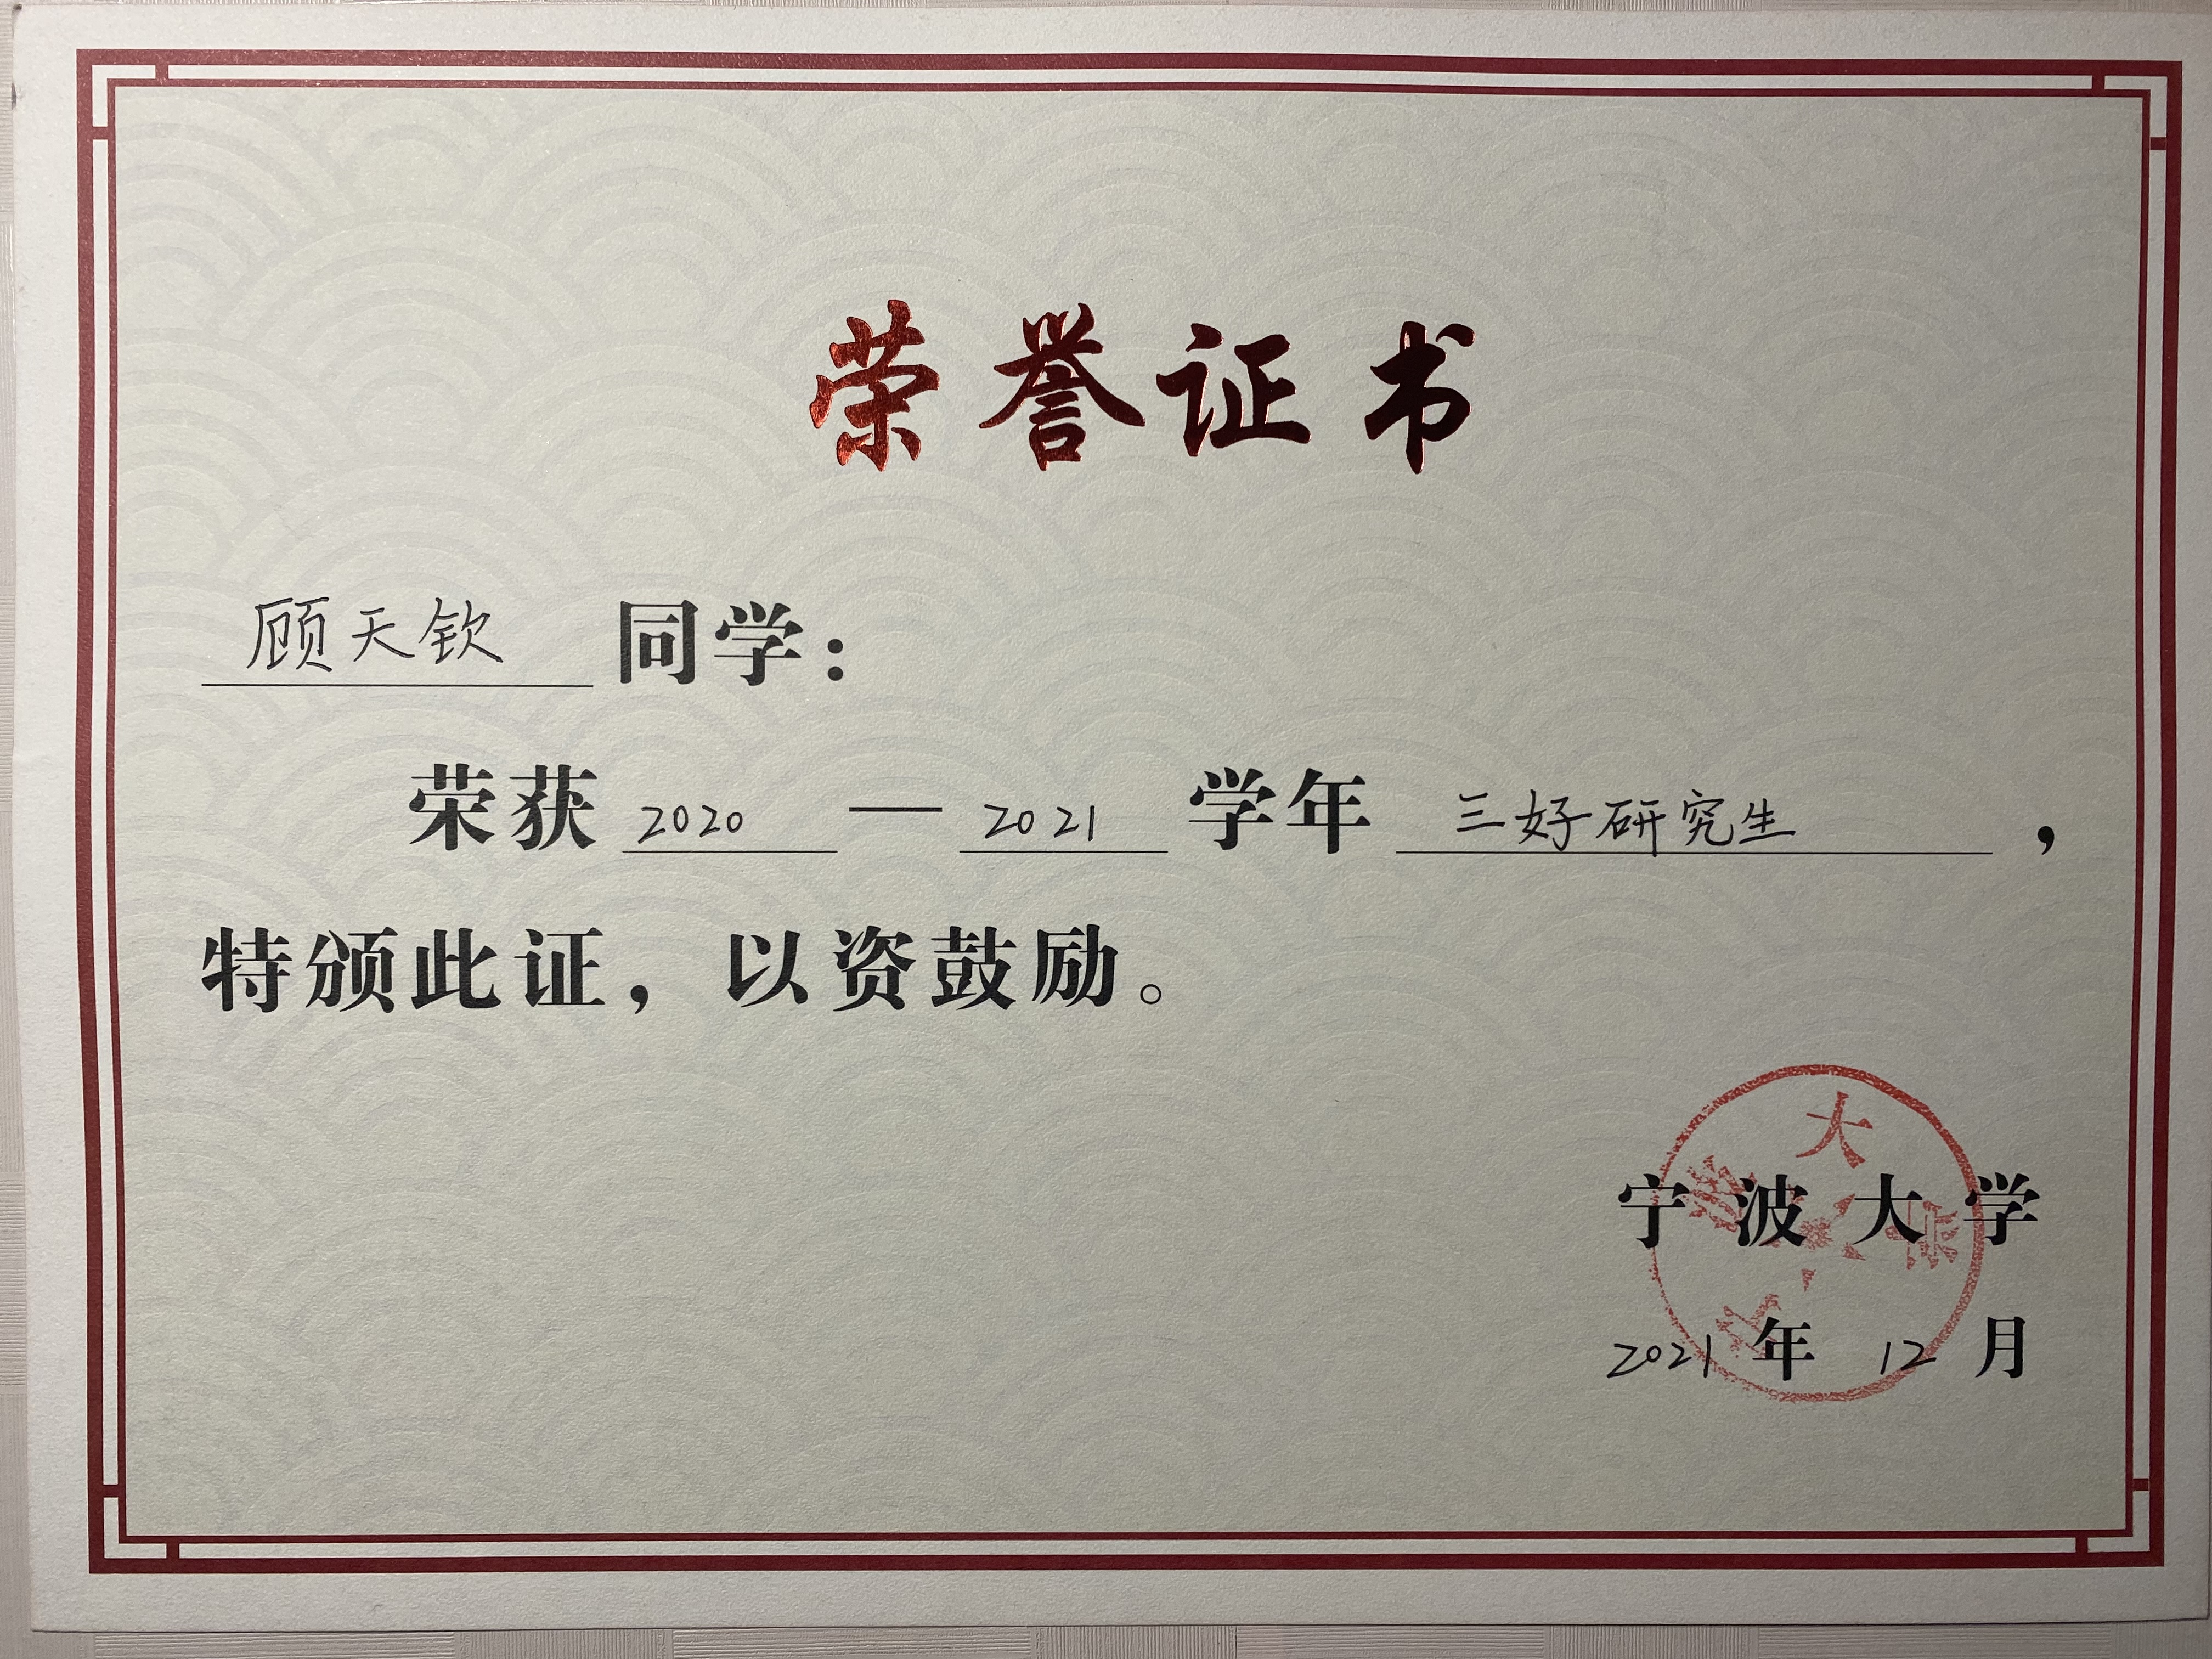 荣誉证书
顾天钦 同学：
荣获 2020 — 2021 学年 三好研究生 ，
特颁此证，以资鼓励。
宁波大学
2021 年 12 月